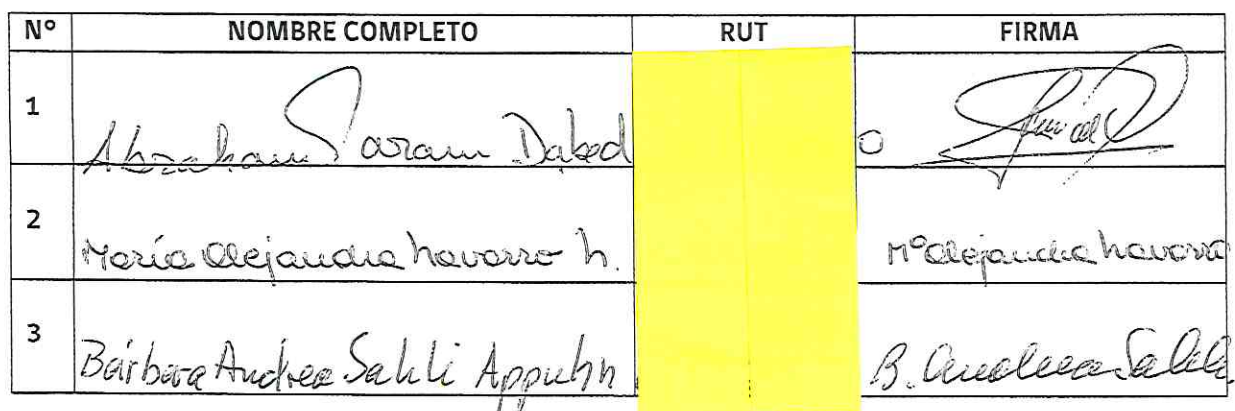 Nº NOMBRE COMPLETO RUT FIRMA
1 Abraham Daram Dabed
2 María Alejandra Navarro N. Mª Alejandra Navarro
3 Bárbara Andrea Sahli Appuhn B. Andrea Sahli